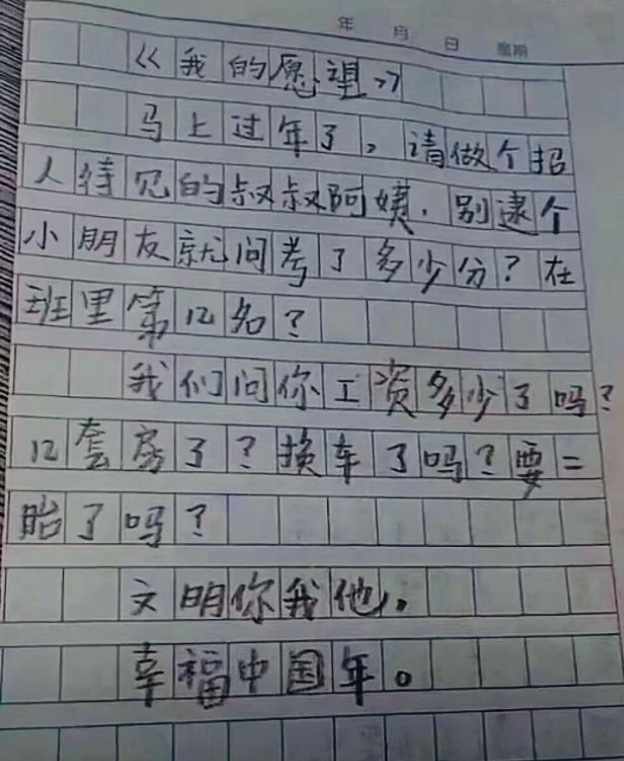 年 月 日 星期
《我的愿望》
马上过年了,请做个招
人待见的叔叔阿姨.别逮个
小朋友就问考了多少分?在
班里第几名?
我们问你工资多少了吗?
几套房了?换车了吗?要二
胎了吗?
文明你我他。
幸福中国年。